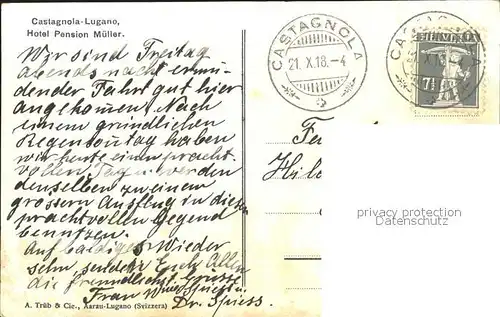 Castagnola-Lugano,
Hotel Pension Müller.
Wir sind Freitag
abends nach ermü-
dender Fahrt gut hier
angekommen. Nach
einem gründlichen
Regensonntag haben
wir heute einen pracht-
vollen Tag u. werden
denselben zu einem
grossern Ausflug in dieser
prachtvollen Gegend
benutzen.
Auf baldiges Wieder
sehn, sendet Euch Allen
die freundlichst. Grüsse
Frau
Dr. Spiess.
A. Trüb & Cie., Aarau-Lugano (Svizzera)
CASTAGNOLA
21. X. 18. - 4
CASTAGNOLA
X. 18. - 4
HELVETIA
7½
Fa
Hil
privacy protection
Datenschutz